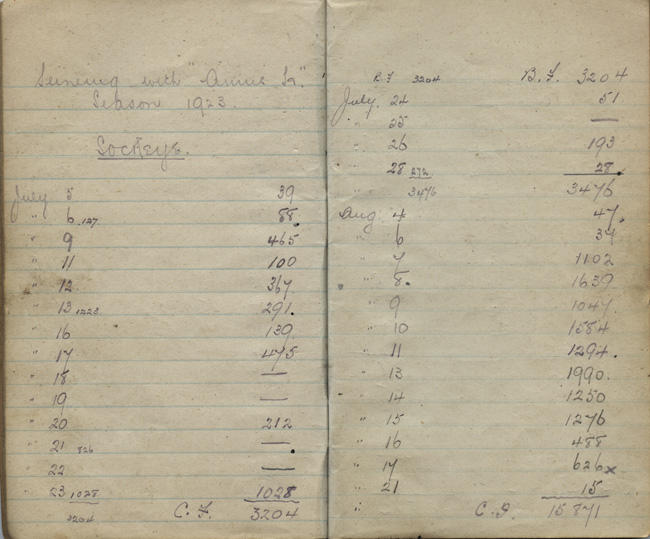 Seining with "Annie
Season 1923.
Sockeye.
July 5 39
" 6 127 88.
" 9 465
" 11 100
" 12 367
" 13 1223 291.
" 16 139
" 17 475
" 18 —
" 19 —
" 20 212
" 21 826 —
" 22 —
" 23 1028 1028
3204 C.F. 3204
B.F 3204 B.F. 3204
July 24 51
" 25 —
" 26 193
" 28 272 28.
" 3476 3476
Aug 4 47.
" 6 37
" 7 1102
" 8. 1639
" 9 1047
" 10 1584
" 11 1294.
" 13 1990.
" 14 1250
" 15 1276
" 16 488
" 17 626x
" 21 15
" C.F. 15871